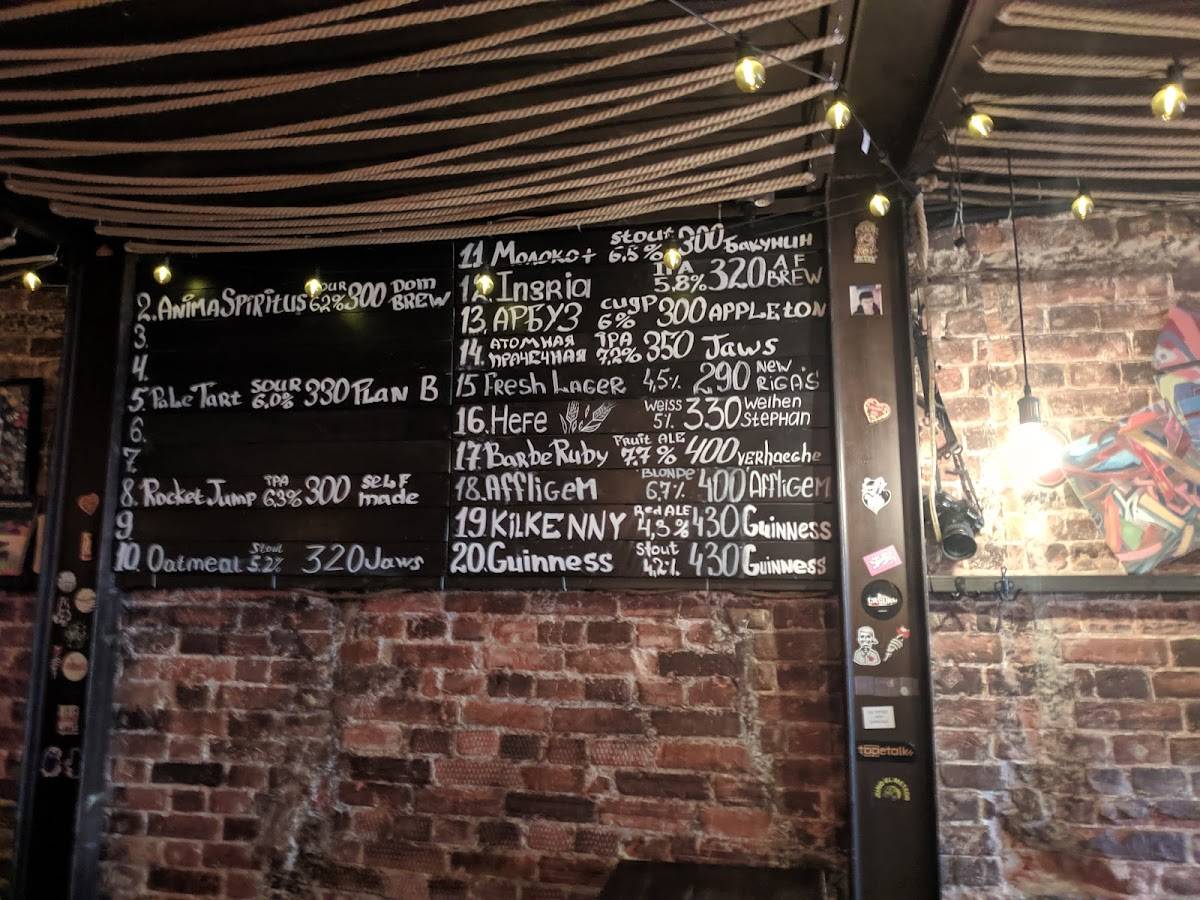 2. AnimaSpiritus SOUR 6.2% 300 Dom BREW
3.
4.
5. Pale Tart SOUR 6,0% 330 PLAN B
6.
7.
8. Rocket Jump IPA 6.3% 300 SELF made
9
10. Oatmeal Stout 5.2% 320 Jaws
11 Молоко+ stout 6,5% 300 Бакунин
12. Insria IPA 5.8% 320 AF BREW
13. АРБУЗ сидр 6% 300 APPLETON
14. АТОМНАЯ ПРАЧЕЧНАЯ IPA 7,2% 350 Jaws
15 Fresh Lager 4,5% 290 NEW RIGA'S
16. Hefe Weiss 5% 330 Weihen Stephan
17. Barbe Ruby Fruit ALE 7.7% 400 verhaeghe
18. Affligem BLONDE 6,7% 400 Affligem
19. KILKENNY Red ALE 4,3% 430 Guinness
20. Guinness Stout 4,2% 430 Guinness
tapetalk